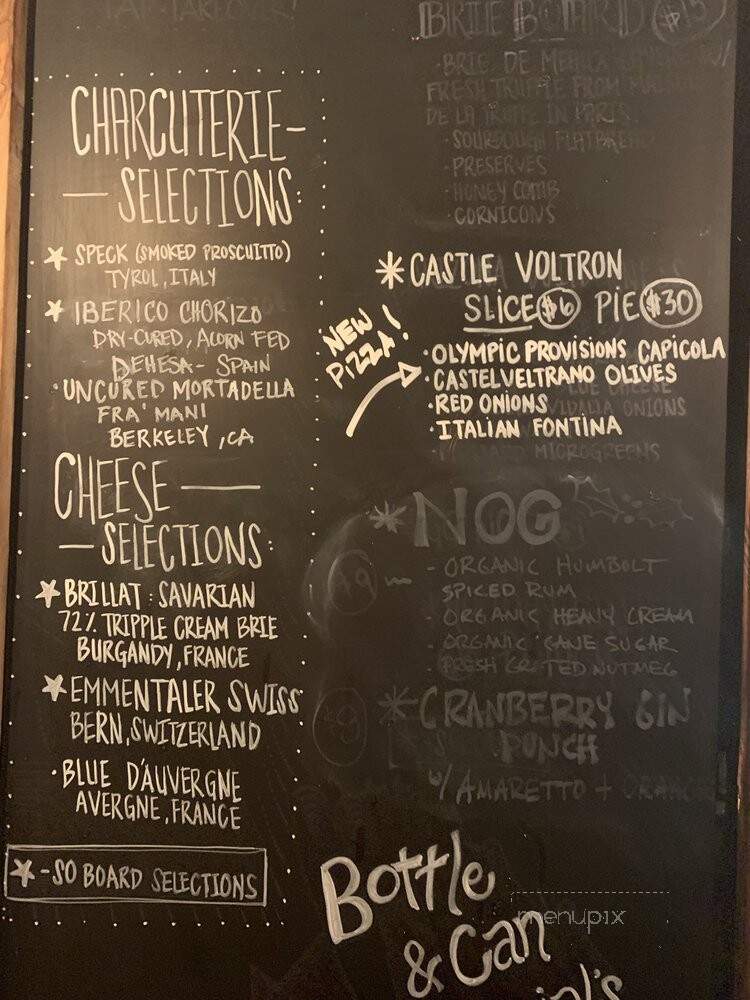 CHARCUTERIE-
— SELECTIONS:
★ SPECK (SMOKED PROSCUITTO)
TYROL, ITALY
★ IBERICO CHORIZO
DRY-CURED, ACORN FED
DEHESA - SPAIN
· UNCURED MORTADELLA
FRA' MANI
BERKELEY, CA
CHEESE —
— SELECTIONS:
★ BRILLAT : SAVARIAN
72% TRIPPLE CREAM BRIE
BURGANDY, FRANCE
★ EMMENTALER SWISS
BERN, SWITZERLAND
· BLUE D'AUVERGNE
AVERGNE, FRANCE
★ - SO BOARD SELECTIONS
BRIE BOARD $15
· BRIE DE
FRESH TRUFFLE FROM
DE LA TRUFFE IN PARIS.
· SOURDOUGH FLATBREAD
· PRESERVES
· HONEY COMB
· CORNICONS
* CASTLE VOLTRON
SLICE $6 PIE $30
NEW
PIZZA!
· OLYMPIC PROVISIONS CAPICOLA
· CASTELVELTRANO OLIVES
· RED ONIONS
VIDALIA ONIONS
· ITALIAN FONTINA
MICROGREENS
* NOG
- ORGANIC HUMBOLT
SPICED RUM
- ORGANIC HEAVY CREAM
- ORGANIC CANE SUGAR
- FRESH GRATED NUTMEG
* CRANBERRY GIN
PUNCH
W/ AMARETTO +
Bottle
& Can
menupix